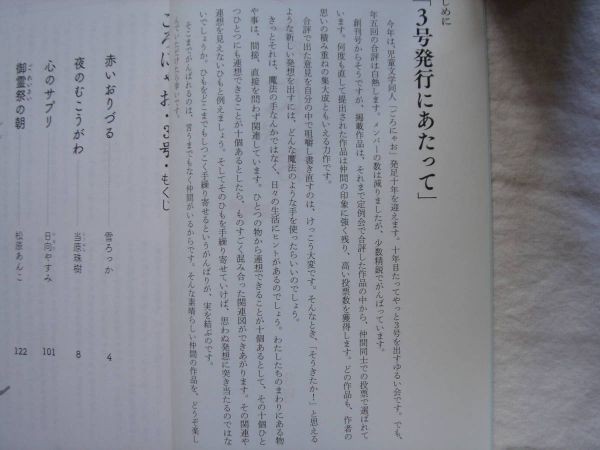 じめに
「3号発行にあたって」
今年は、児童文学同人「ごろにゃお」発足十年を迎えます。十年目たってやっと3号を出すゆるい会です。でも、
年五回の合評は白熱します。メンバーの数は減りましたが、少数精鋭でがんばっています。
創刊号からそうですが、掲載作品は、それまで定例会で合評した作品の中から、仲間同士での投票で選ばれて
います。何度も直して提出された作品は仲間の印象に強く残り、高い投票数を獲得します。どの作品も、作者の
思いの積み重ねの集大成ともいえる力作です。
合評で出た意見を自分の中で咀嚼し書き直すのは、けっこう大変です。そんなとき、「そうきたか！」と思える
ような新しい発想を出すには、どんな魔法のような手を使ったらいいのでしょう。
きっとそれは、魔法の手なんかではなく、日々の生活にヒントがあるのでしょう。わたしたちのまわりにある物
や事は、間接、直接を問わず関連しています。ひとつの物から連想できることが十個あるとして、その十個ひと
つひとつにも連想できることが十個あるとしたら、ものすごく混み合った関連図ができあがります。その関連や
連想を見えないひもと例えましょう。そしてそのひもを手繰り寄せていけば、思わぬ発想に突き当たるのではな
いでしょうか。ひもをどこまでもしつこく手繰り寄せるというがんばりが、実を結ぶのです。
そこまでがんばれるのは、言うまでもなく仲間がいるからです。そんな素晴らしい仲間の作品を、どうぞ楽し
ごろにゃお・3号・もくじ
赤いおりづる 雪ろっか 4
夜のむこうがわ 当原珠樹 8
心のサプリ 日向やすみ 101
御霊祭の朝 松原あんこ 122